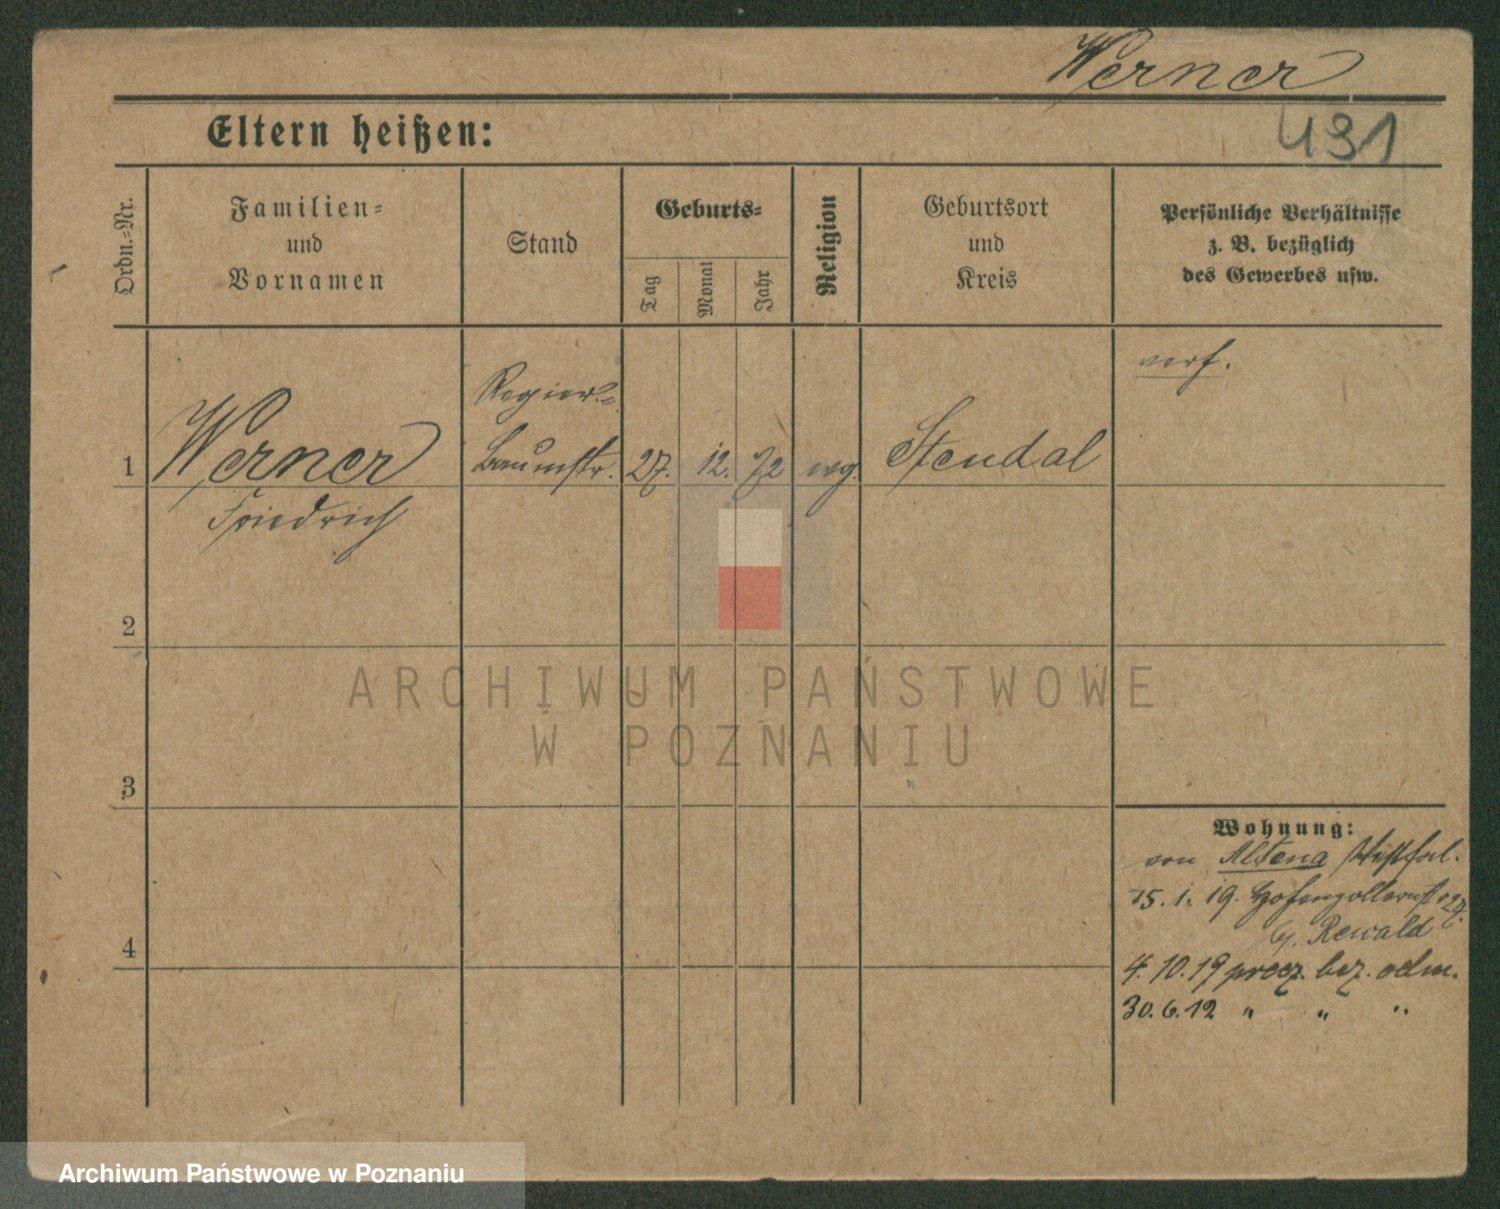 Werner
431
Eltern heißen:
Ordn.-Nr.
Familien-
und
Vornamen
Stand
Geburts-
Tag
Monat
Jahr
Religion
Geburtsort
und
Kreis
Persönliche Verhältnisse
z. B. bezüglich
des Gewerbes usw.
verh.
Regier.-
1 Werner Baumstr. 27. 12. 72 evg. Stendal
Friedrich
2
3
4
ARCHIWUM PAŃSTWOWE
W POZNANIU
Wohnung:
von Altena Westfal.
15. 1. 19. Hohenzollernstr 27.
b/. Rewald
4. 10. 19 przez. bez. odm.
30. 6. 12 " " "
Archiwum Państwowe w Poznaniu